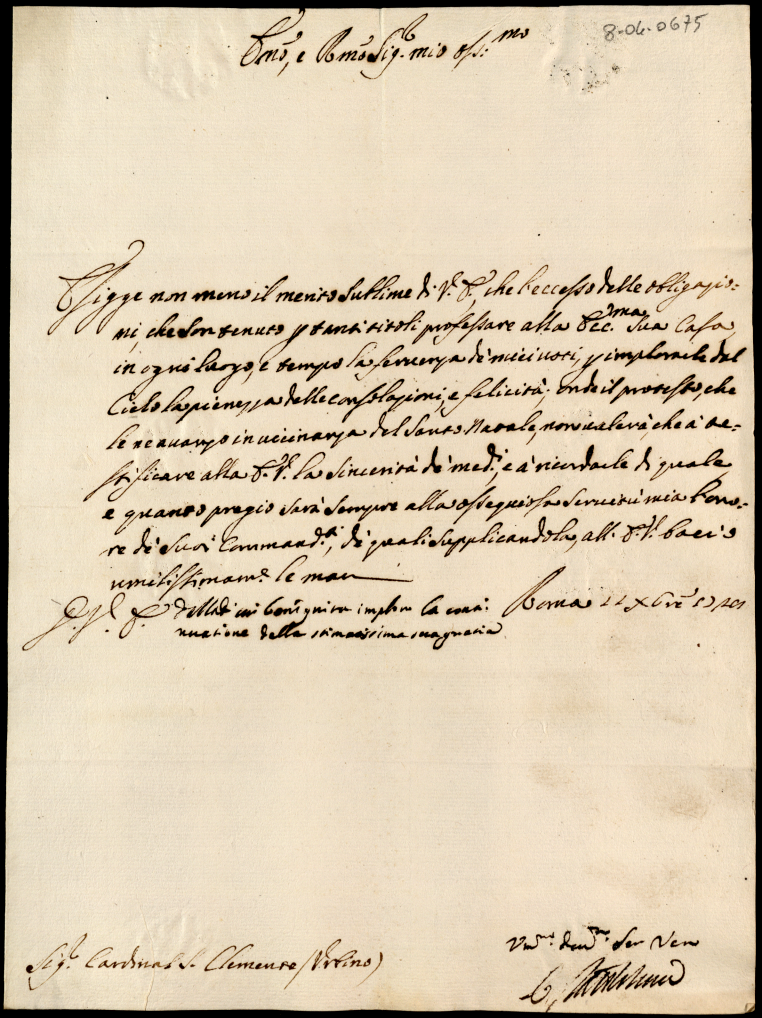 8-06-0675
Em̃o, e Rmõ Sig.r mio oss.mo
Esigge non meno il merito sublime di V.E., che l'eccesso delle obligazio:
ni, che son tenuto p tanti titoli professare alla Ecc.ma Sua Casa,
in ogni luogo, e tempo la fervenza de miei voti, p implorarle dal
Cielo la pienezza delle consolazioni, e felicità; onde il protesto, che
le ne avanzo in vicinanza del Santo Natale, non valerà, che à te-
stificare alla E.V. la sincerità de med.i, e à ricordarle di quale,
e quanto pregio sarà sempre alla ossequiosa servitù mia l'ono-
re de Suoi Command.ti, de quali supplicandola, all' E.V. bacio
umilissimam.e le mani
D.V.E. della di cui benignità imploro la conti:
Roma 22 Xbre
nuatione della stimatissima sua gratia
Vm̃o dev.mo Ser Vero
Sig.r Cardinal S. Clemente (Urbino)